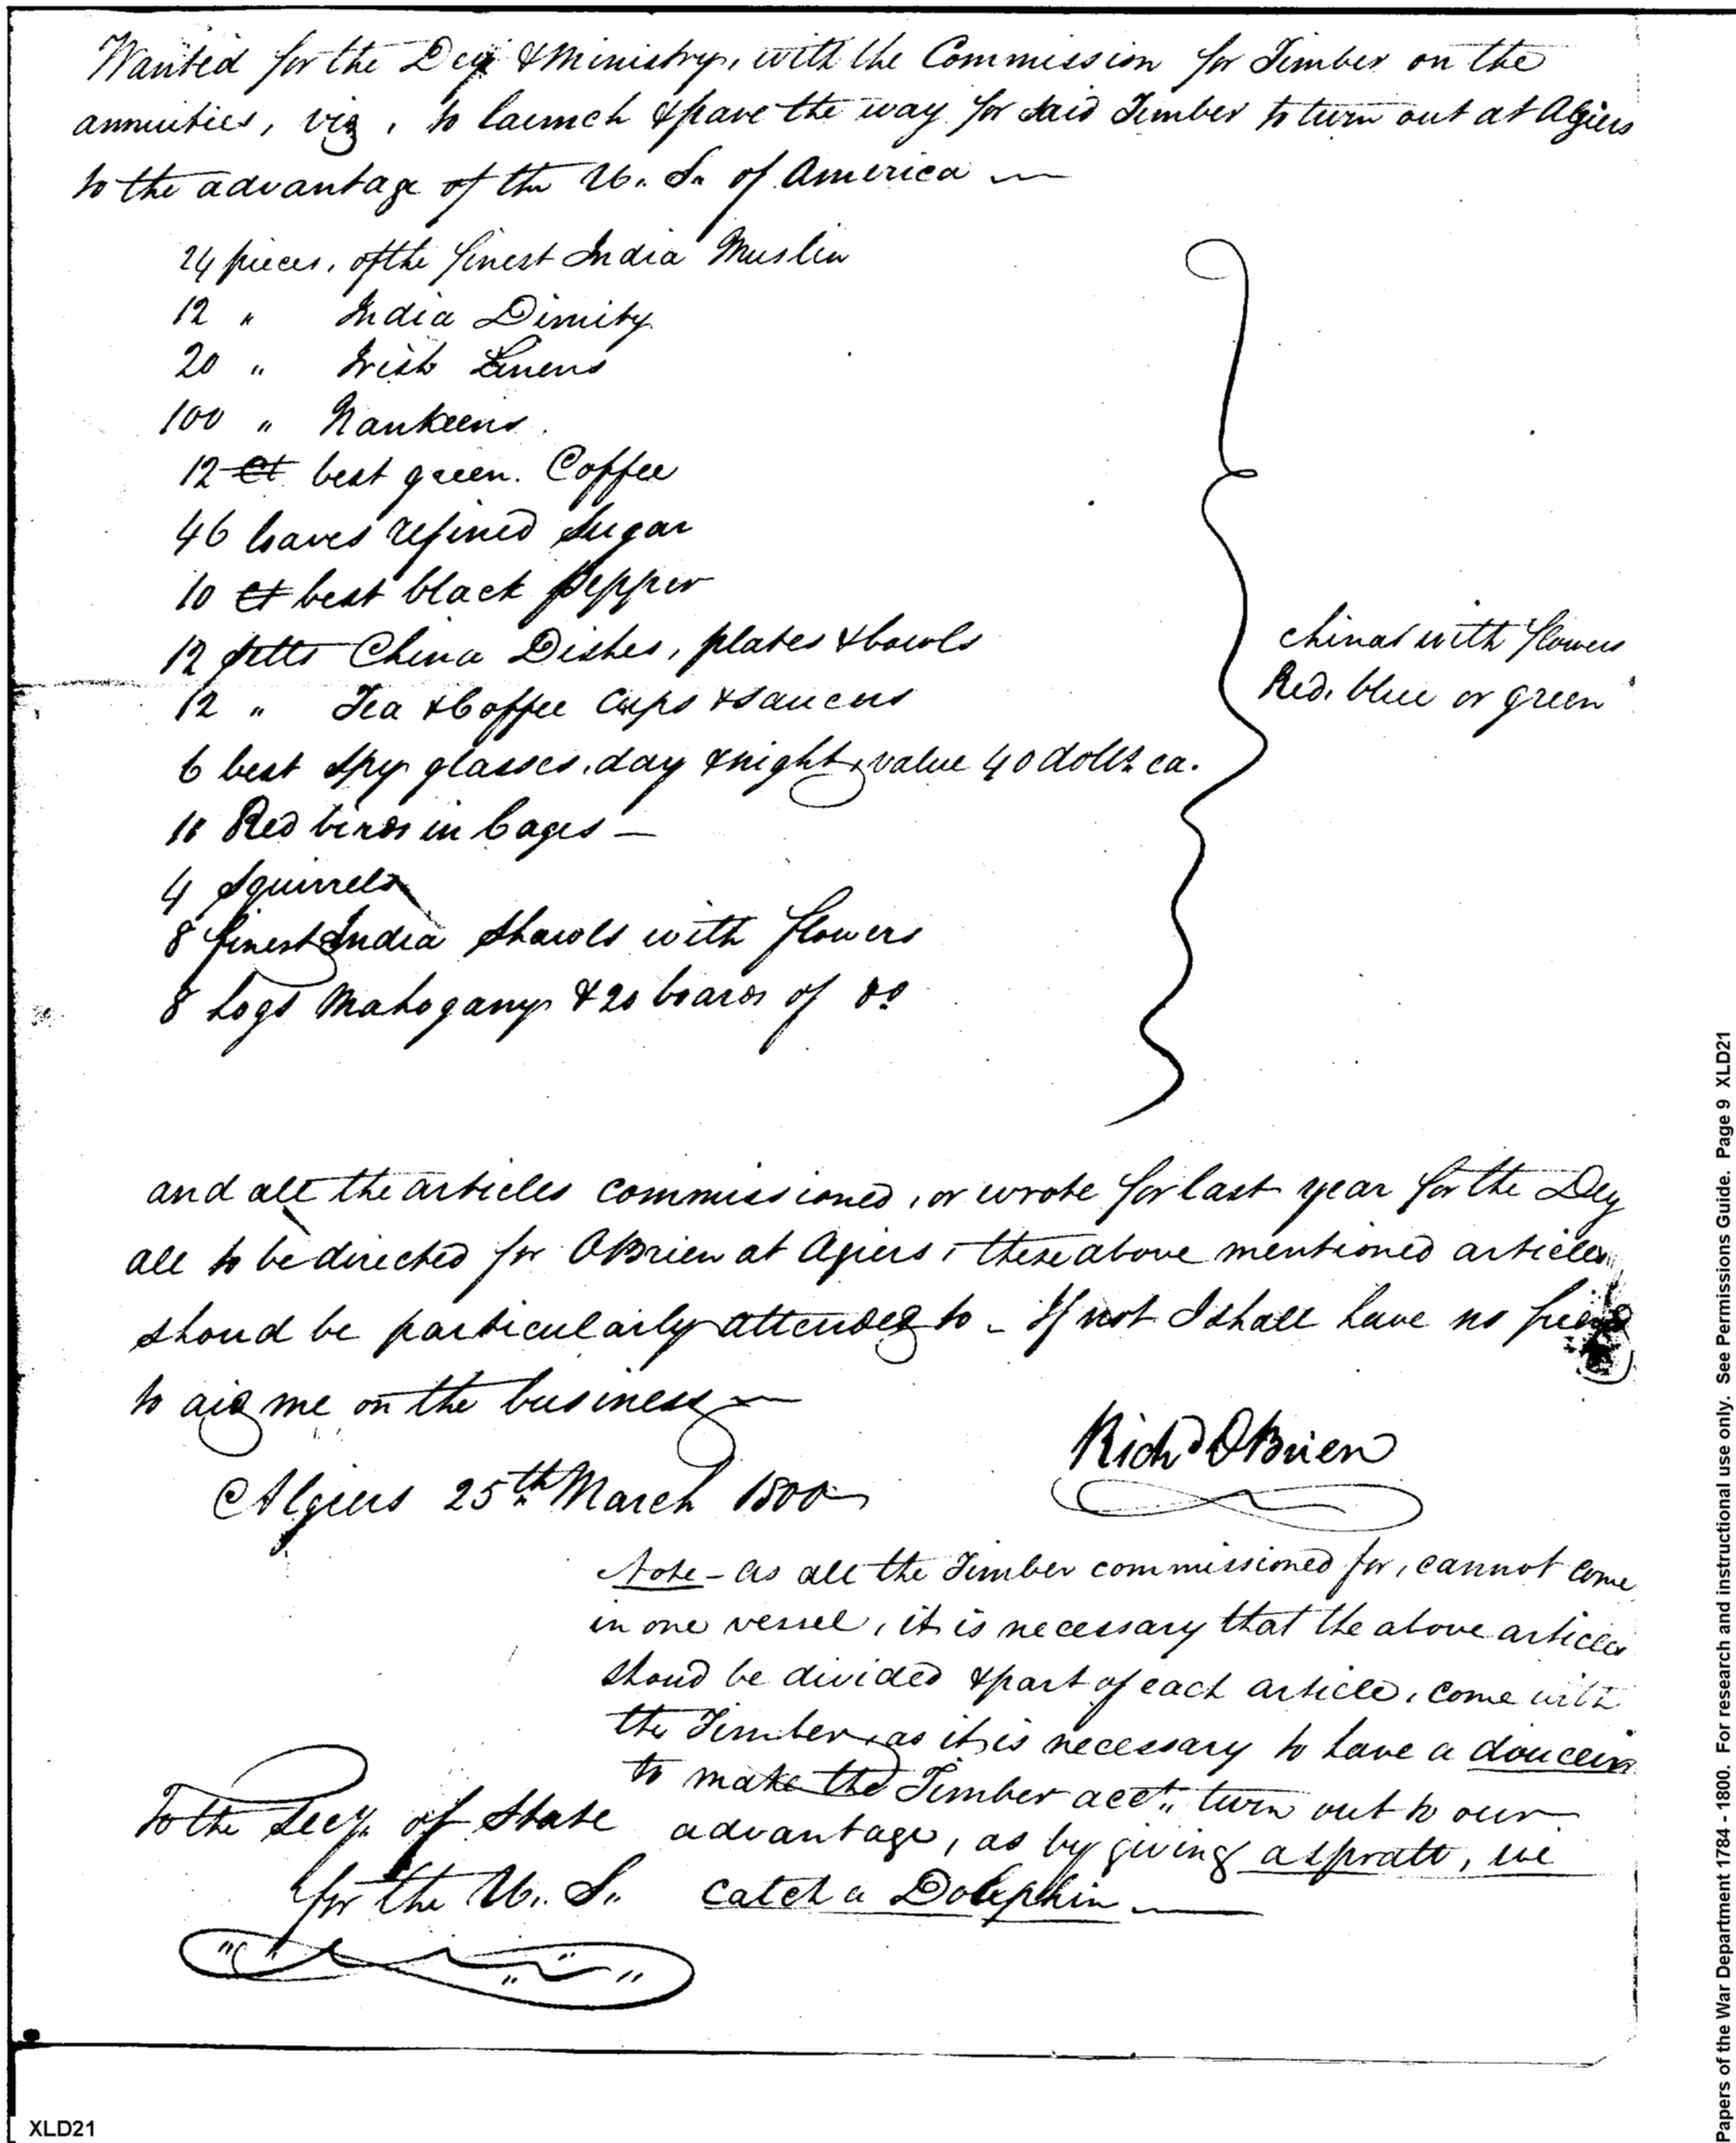 Wanted for the Dey & Ministry, with the Commission for Timber on the
annuities, viz, to launch & pave the way for said Timber to turn out at Algiers
to the advantage of the U. S. of America
24 pieces, of the finest India Muslin
12 " India Dimity
20 " Irish Linens
100 " Nankeens
12 Ct best green. Coffee
46 loaves refined Sugar
10 Ct best black pepper
12 setts China Dishes, plates & bowls
12 " Tea & Coffee Cups & saucers
chinas with flowers
Red, blue or green
6 best Spy glasses, day & night, value 40 dolls ea.
Red birds in Cages —
4 Squirrels
8 finest India Shawls with flowers
8 Logs Mahogany & 20 boards of do
and all the articles commissioned, or wrote for last year for the Dey
all to be directed for OBrien at Agiers, these above mentioned articles
shoud be particularly attended to - If not I shall have no friend
to aid me on the business
Richd OBrien
Algiers 25th March 1800
Note - as all the Timber commissioned for, cannot come
in one vessel, it is necessary that the above articles
shoud be divided & part of each article, come with
the Timber, as it is necessary to have a douceur
to make the Timber acct. turn out to our
advantage, as by giving a spratt, we
catch a Dolphin
To the Secy. of State
for the U. S.
XLD21
Papers of the War Department 1784 - 1800. For research and instructional use only. See Permissions Guide. Page 9 XLD21